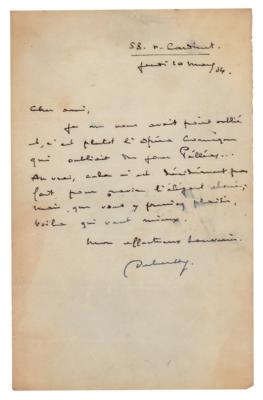 58. r. Cardinet
jeudi 10 mars /04.
Cher ami,
Je ne vous avais point oublié
et, c'est plutôt l'Opéra Comique
qui oubliait de jouer Pelléas...
Au vrai, cela n'est décidément pas
fait pour
mais, que vous y preniez plaisir,
voilà qui vaut mieux.
Mon affectueux souvenir.
Debussy